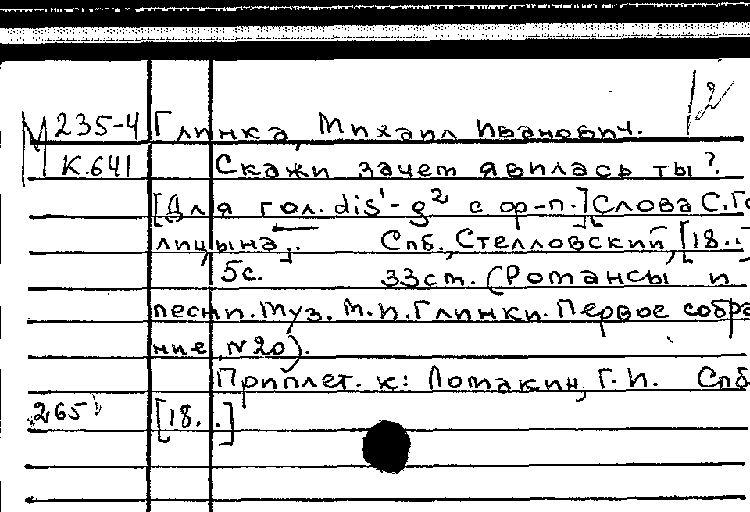 М 235-4 Глинка, Михаил Иванович. 12
К.641 Скажи зачем явилась ты?
[Для гол. dis¹-g² с ф-п.] Слова С. Го
лицына.. Спб., Стелловский, [18..]
5с. 33см. (Романсы и
песни. Муз. М.И. Глинки. Первое собра
ние, N20).
Приплет. к: Ломакин, Г.И. Спб
265 [18..]